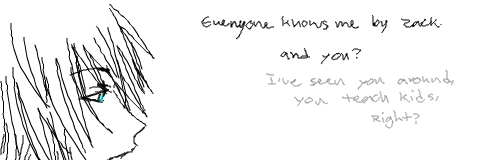 Everyone knows me by Zack.
and you?
I've seen you around,
you teach kids,
Right?